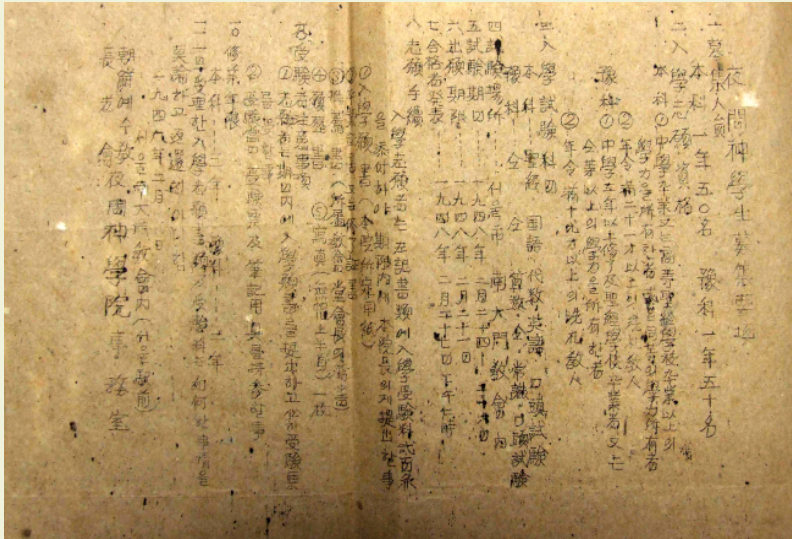 夜間神學生募集要地
一. 募集人員
本科一年 五〇名 豫科一年 五十名
二. 入學志願資格
本科 ① 中學卒業又는 高等聖經學校卒業以上의
學力을 所有한者
② 年令 滿二十一才以上의 洗礼敎人
豫科 ① 中學三年以上修了及聖經學校卒業者又는
仝等以上의 學力을 所有한者
② 年令 滿十九才以上의 洗礼敎人
三. 入學試驗科目
本科 聖經 國語 代數 英語 口頭試驗
豫科 仝 仝 算数 仝 常識 口頭試驗
四. 試驗場所 서울市 南大門敎會內
五. 試驗期日 一九四八年 二月二十四日
六. 出願期限 一九四八年 二月二十一日
七. 合格者發表 一九四八年 二月二十七日 下午七時
八. 志願手續
入學志願者는 左記書類에 入學受驗料 百円을
을 添付하야 期限內에 本院長의게 提出할事
① 入學願書 (本院所定用紙)
③ 推薦書 (所屬敎會堂會長의
④ 履歷書 ⑤ 寫眞 一枚
九. 受驗者注意事項
① 志願者는 期日內에 入學願書를 提出하고 受驗票
를
② 受驗當日 受驗票及 筆記用具를 持参할事
一〇. 修業年限
本科 三年 豫科 二年
一一. 一旦受理한 入學志願書類及受驗料는 如何한 事情을
莫論하고 返還치 아니함
一九四八年 二月 日
서울市 南大門敎會內 (서울驛前)
朝鮮예수敎
長老會 夜間神學院事務室